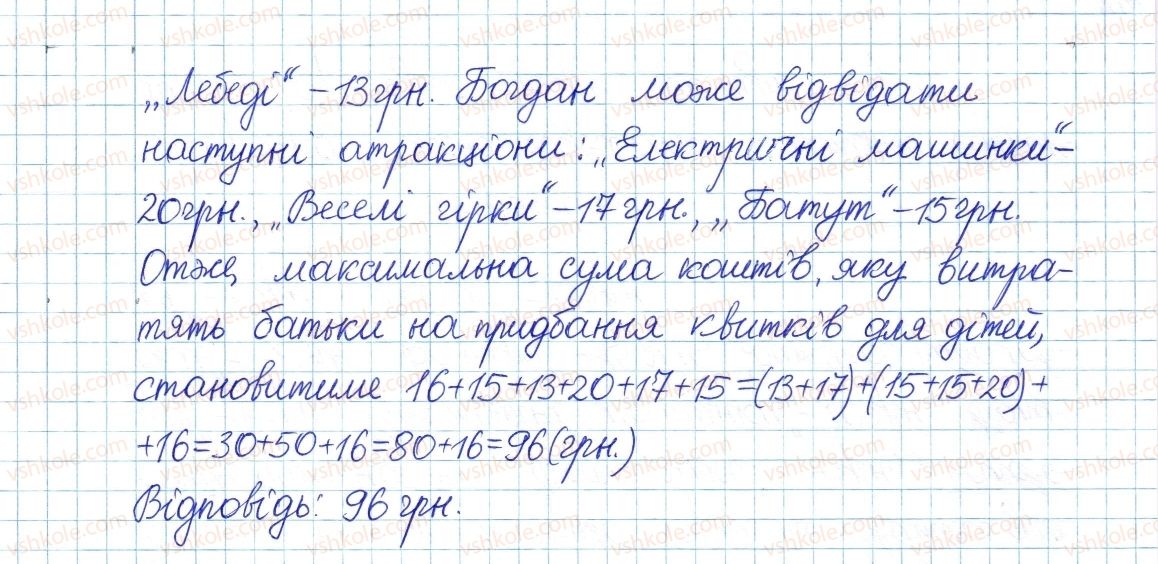 „Лебеді“ – 13 грн. Богдан може відвідати
наступні атракціони: „Електричні машинки“ –
20 грн., „Веселі гірки“ – 17 грн., „Батут“ – 15 грн.
Отже, максимальна сума коштів, яку витра-
тять батьки на придбання квитків для дітей,
становитиме 16+15+13+20+17+15=(13+17)+(15+15+20)+
+16=30+50+16=80+16=96(грн.)
Відповідь: 96 грн.